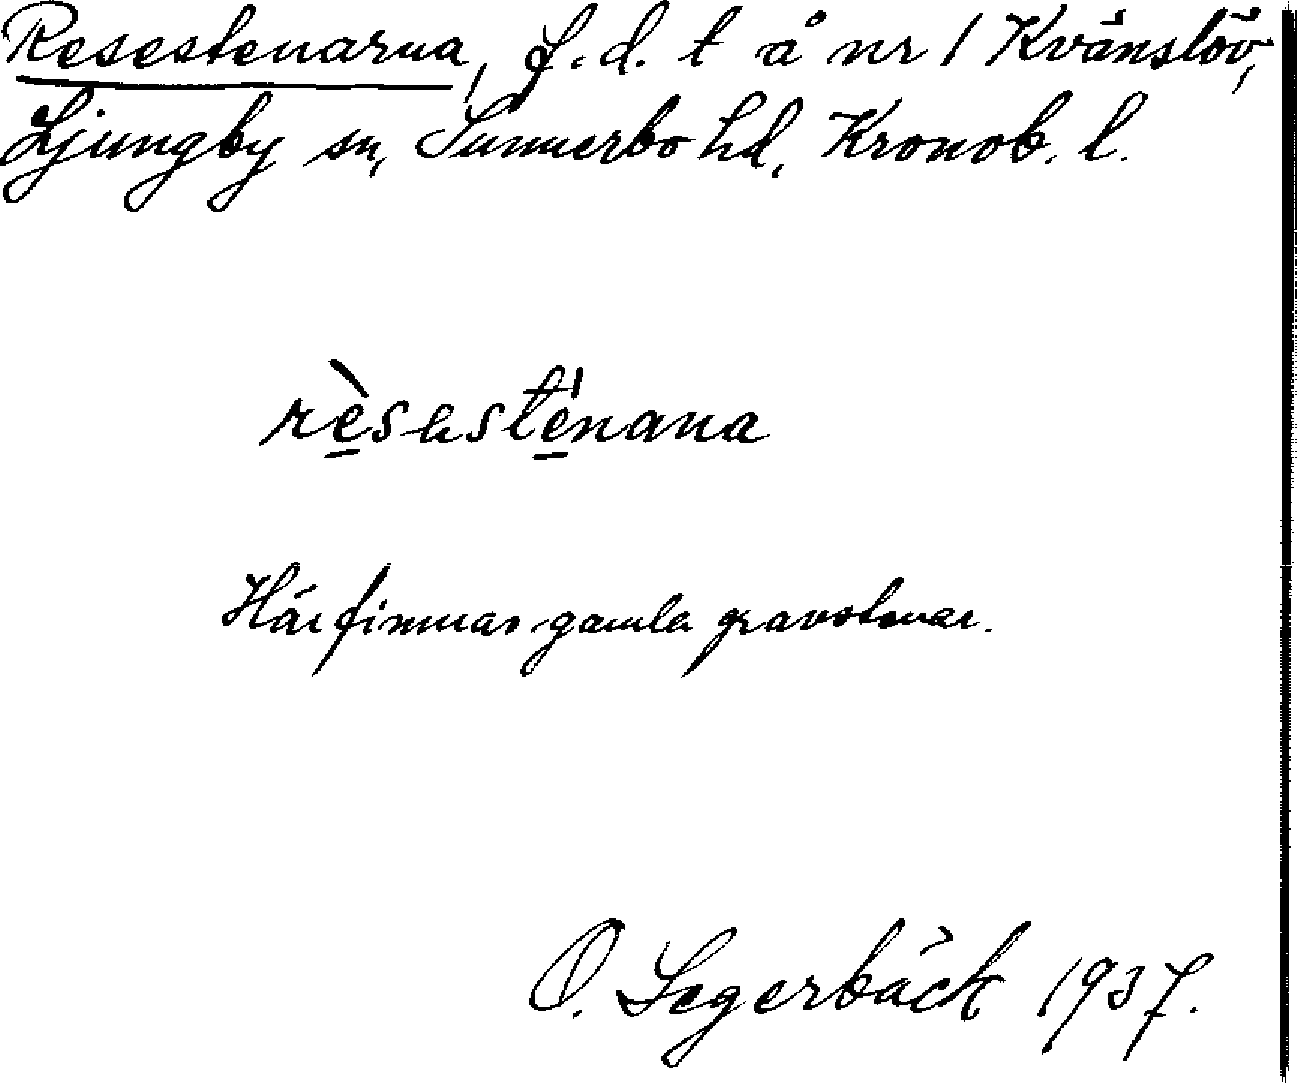 Resestenarna, f.d. t å nr 1 Kvänslöv,
Ljungby sn, Sunnerbo hd, Kronob. l.
rèsɐsténana
Här finnas gamla gravstenar.
O. Segerbäck 1937.